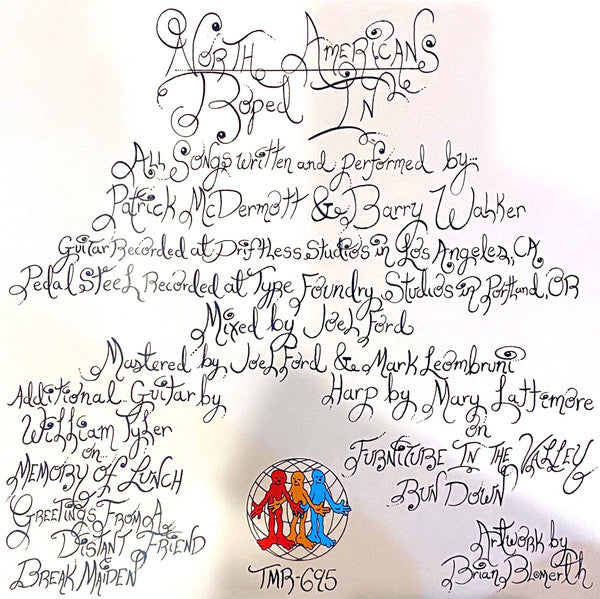 North Americans
Roped In
All Songs written and performed by...
Patrick McDermott & Barry Walker
Guitar Recorded at Driftless Studios in Los Angeles, CA
Pedal Steel Recorded at Type Foundry Studios in Portland, OR
Mixed by Joel Ford
Mastered by Joel Ford & Mark Leombruni
Additional Guitar by
William Tyler
on
Memory of Lunch
Greetings From A
Distant Friend
Break Maiden
Harp by Mary Lattimore
on
Furniture In The Valley
Run Down
TMR-695
Artwork by
Brian Blomerth